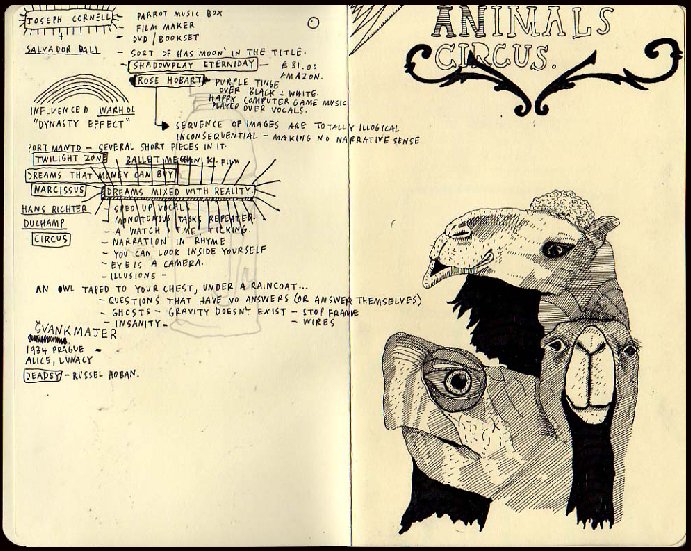 JOSEPH CORNELL - PARROT MUSIC BOX
FILM MAKER
- DVD / BOOKSET
SALVADOR DALI - SORT OF HAS 'MOON' IN THE TITLE.
SHADOWPLAY ETERNIDAY - £31.01
AMAZON.
ROSE HOBART
PURPLE TINGE
OVER BLACK & WHITE.
HAPPY COMPUTER GAME MUSIC
PLAYED OVER VOCALS.
INFLUENCED WARHOL
"DYNASTY EFFECT"
SEQUENCE OF IMAGES ARE TOTALLY ILLOGICAL
INCONSEQUENTIAL - MAKING NO NARRATIVE SENSE
PORT MANTO - SEVERAL SHORT PIECES IN IT.
TWILIGHT ZONE BALLET FILM
DREAMS THAT MONEY CAN BUY
NARCISSUS DREAMS MIXED WITH REALITY.
HANS RICHTER - SPED UP VOCALS
DUCHAMP - MONOTONOUS TASKS REPEATED.
- A WATCH TICKING.
CIRCUS - NARRATION IN RHYME
- YOU CAN LOOK INSIDE YOURSELF
- EYE IS A CAMERA.
- ILLUSIONS -
AN OWL TAPED TO YOUR CHEST, UNDER A RAINCOAT...
- QUESTIONS THAT HAVE NO ANSWERS (OR ANSWER THEMSELVES)
- GHOSTS - GRAVITY DOESN'T EXIST - STOP FRAME
- INSANITY - - WIRES
SVANKMAJER
1934 PRAGUE -
ALICE, LUNACY
- RUSSEL HOBAN.
ANIMALS
CIRCUS.